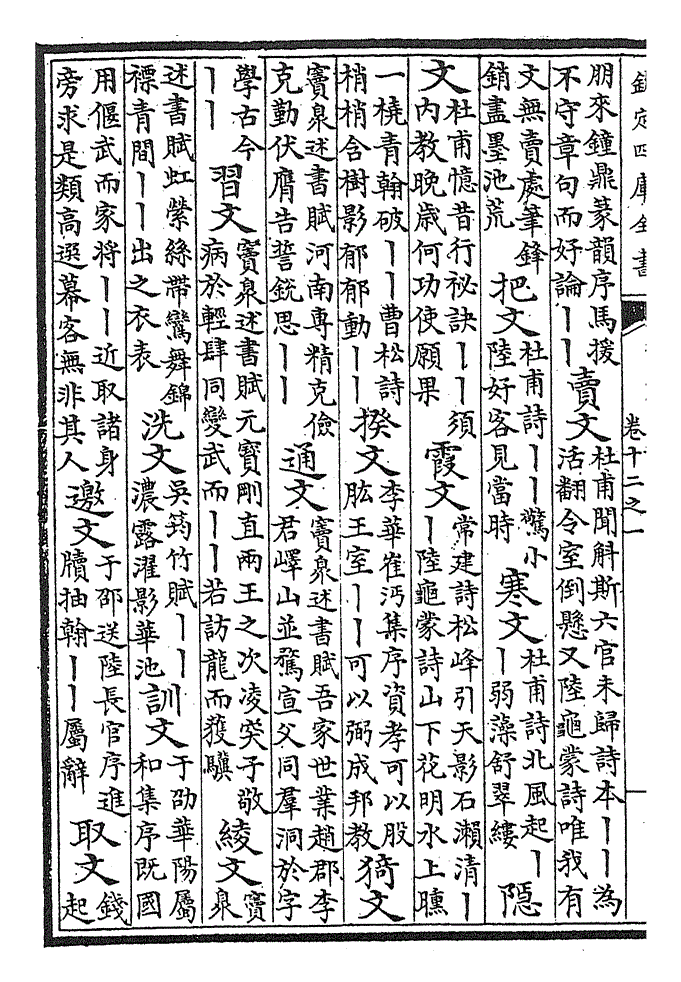 欽定四庫全書
卷十二之一
朋來鐘鼎篆韻序馬援
不守章句而好論丨丨
賣文
杜甫聞斛斯六官未歸詩本丨丨為
活翻令室倒懸又陸龜蒙詩唯我有
文無賣處筆鋒
銷盡墨池荒
把文
杜甫詩丨丨驚小
陸好客見當時
寒文
杜甫詩北風起丨
丨弱藻舒翠縷
隱
文
杜甫憶昔行祕訣丨丨須
内教晚歲何功使願果
霞文
常建詩松峰引天影石瀨清丨
丨陸龜蒙詩山下花明水上曛
一橈青翰破丨丨曹松詩
梢梢含樹影郁郁動丨丨
揆文
李華崔沔集序資孝可以股
肱王室丨丨可以弼成邦教
猗文
竇泉述書賦河南專精克儉
克勤伏膺告誓銳思丨丨
通文
竇泉述書賦吾家世業趙郡李
君嶧山並騖宣父同羣洞於字
學古今
丨丨
習文
竇泉述書賦元寶剛直兩王之次凌奕子敬
病於輕肆同變武而丨丨若訪龍而獲驥
綾文
竇
泉
述書賦虹縈絲帶鸞舞錦
褾青間丨丨出之衣表
洗文
吳筠竹賦丨丨
濃露濯影華池
訓文
于劭華陽屬
和集序既國
用偃武而家將丨丨近取諸身
旁求是類高選幕客無非其人
邀文
于邵送陸長官序進
牘抽翰丨丨屬辭
取文
錢
起